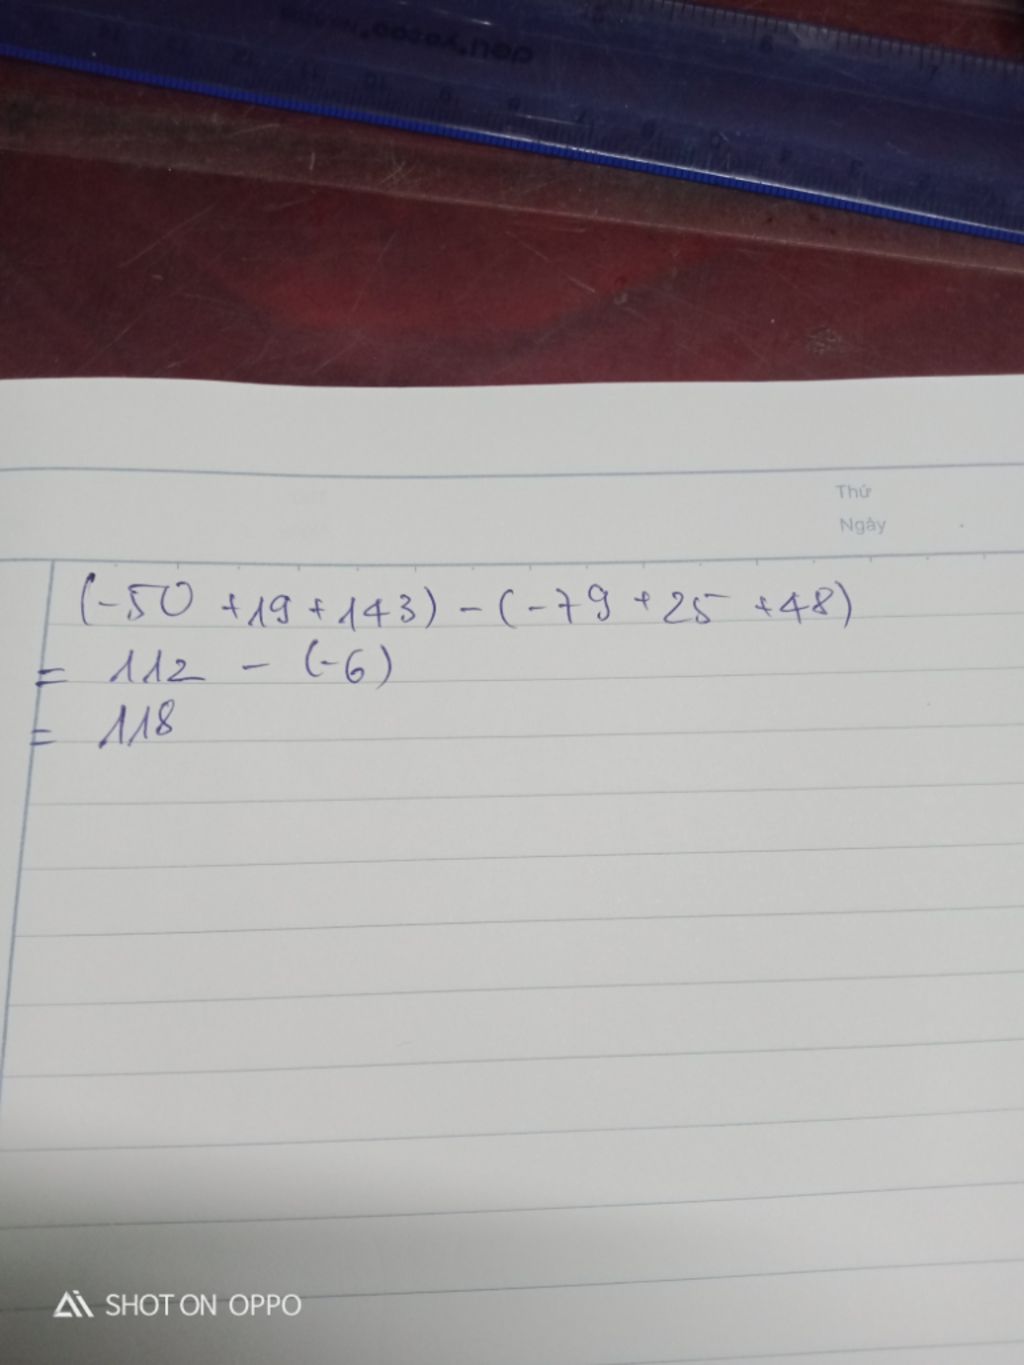 Thứ
Ngày
(-50 +19 +143) - (-79 + 25 +48)
= 112 - (-6)
= 118
SHOT ON OPPO